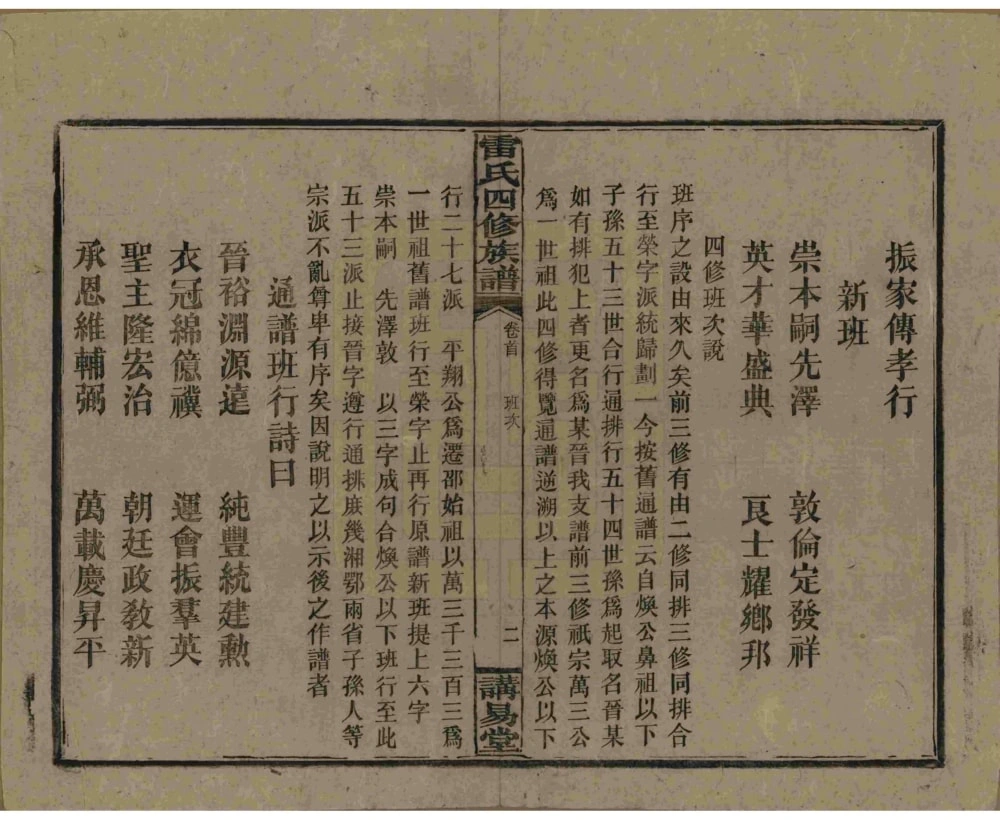 振家傳孝行
新班
崇本嗣先澤　敦倫定發祥
英才華盛典　良士耀鄉邦
四修班次說
班序之設由來久矣前三修有由二修同排三修同排合
行至榮字派統歸劃一今按舊通譜云自煥公鼻祖以下
子孫五十三世合行通排行五十四世孫爲起取名晉某
如有排犯上者更名爲某晉我支譜前三修祇宗萬三公
爲一世祖此四修得覽通譜逆溯以上之本源煥公以下
雷氏四修族譜　卷首　班次　二　講易堂
行二十七派　平翔公爲遷邵始祖以萬三千三百三爲
一世祖舊譜班行至榮字止再行原譜新班提上六字
崇本嗣　先澤敦　以三字成句合煥公以下班行至此
五十三派止接晉字遵行通排庶幾湘鄂兩省子孫人等
宗派不亂尊卑有序矣因說明之以示後之作譜者
通譜班行詩曰
晉裕淵源遠　純豐統建勲
衣冠綿億禩　運會振羣英
聖主隆宏治　朝廷政敎新
承恩維輔弼　萬載慶昇平